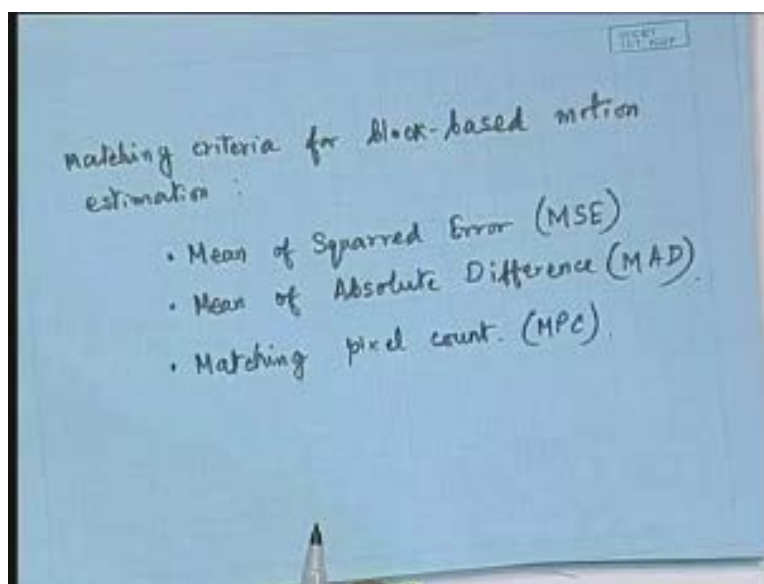 Matching criteria for block-based motion
estimation :
• Mean of Squarred Error (MSE)
• Mean of Absolute Difference (MAD).
• Matching pixel count. (MPC).